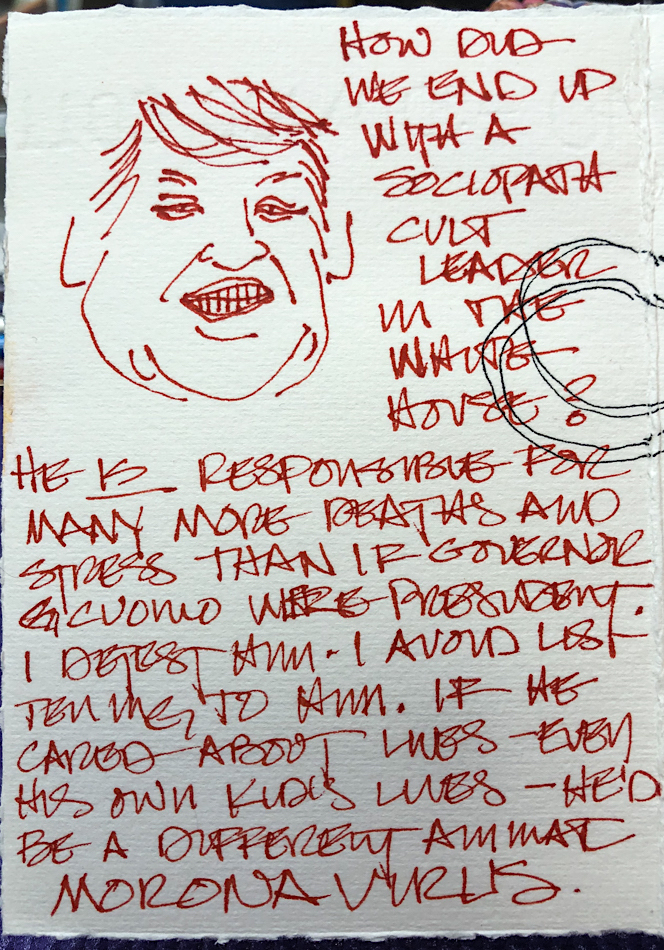 HOW DID
WE END UP
WITH A
SOCIOPATH
CULT
LEADER
IN THE
WHITE
HOUSE?
HE IS RESPONSIBLE FOR
MANY MORE DEATHS AND
STRESS THAN IF GOVERNOR
CUOMO WERE PRESIDENT.
I DETEST HIM. I AVOID LIS-
TENING TO HIM. IF HE
CARED ABOUT LIVES - EVEN
HIS OWN KID'S LIVES - HE'D
BE A DIFFERENT ANIMAL
MORONAVIRUS.